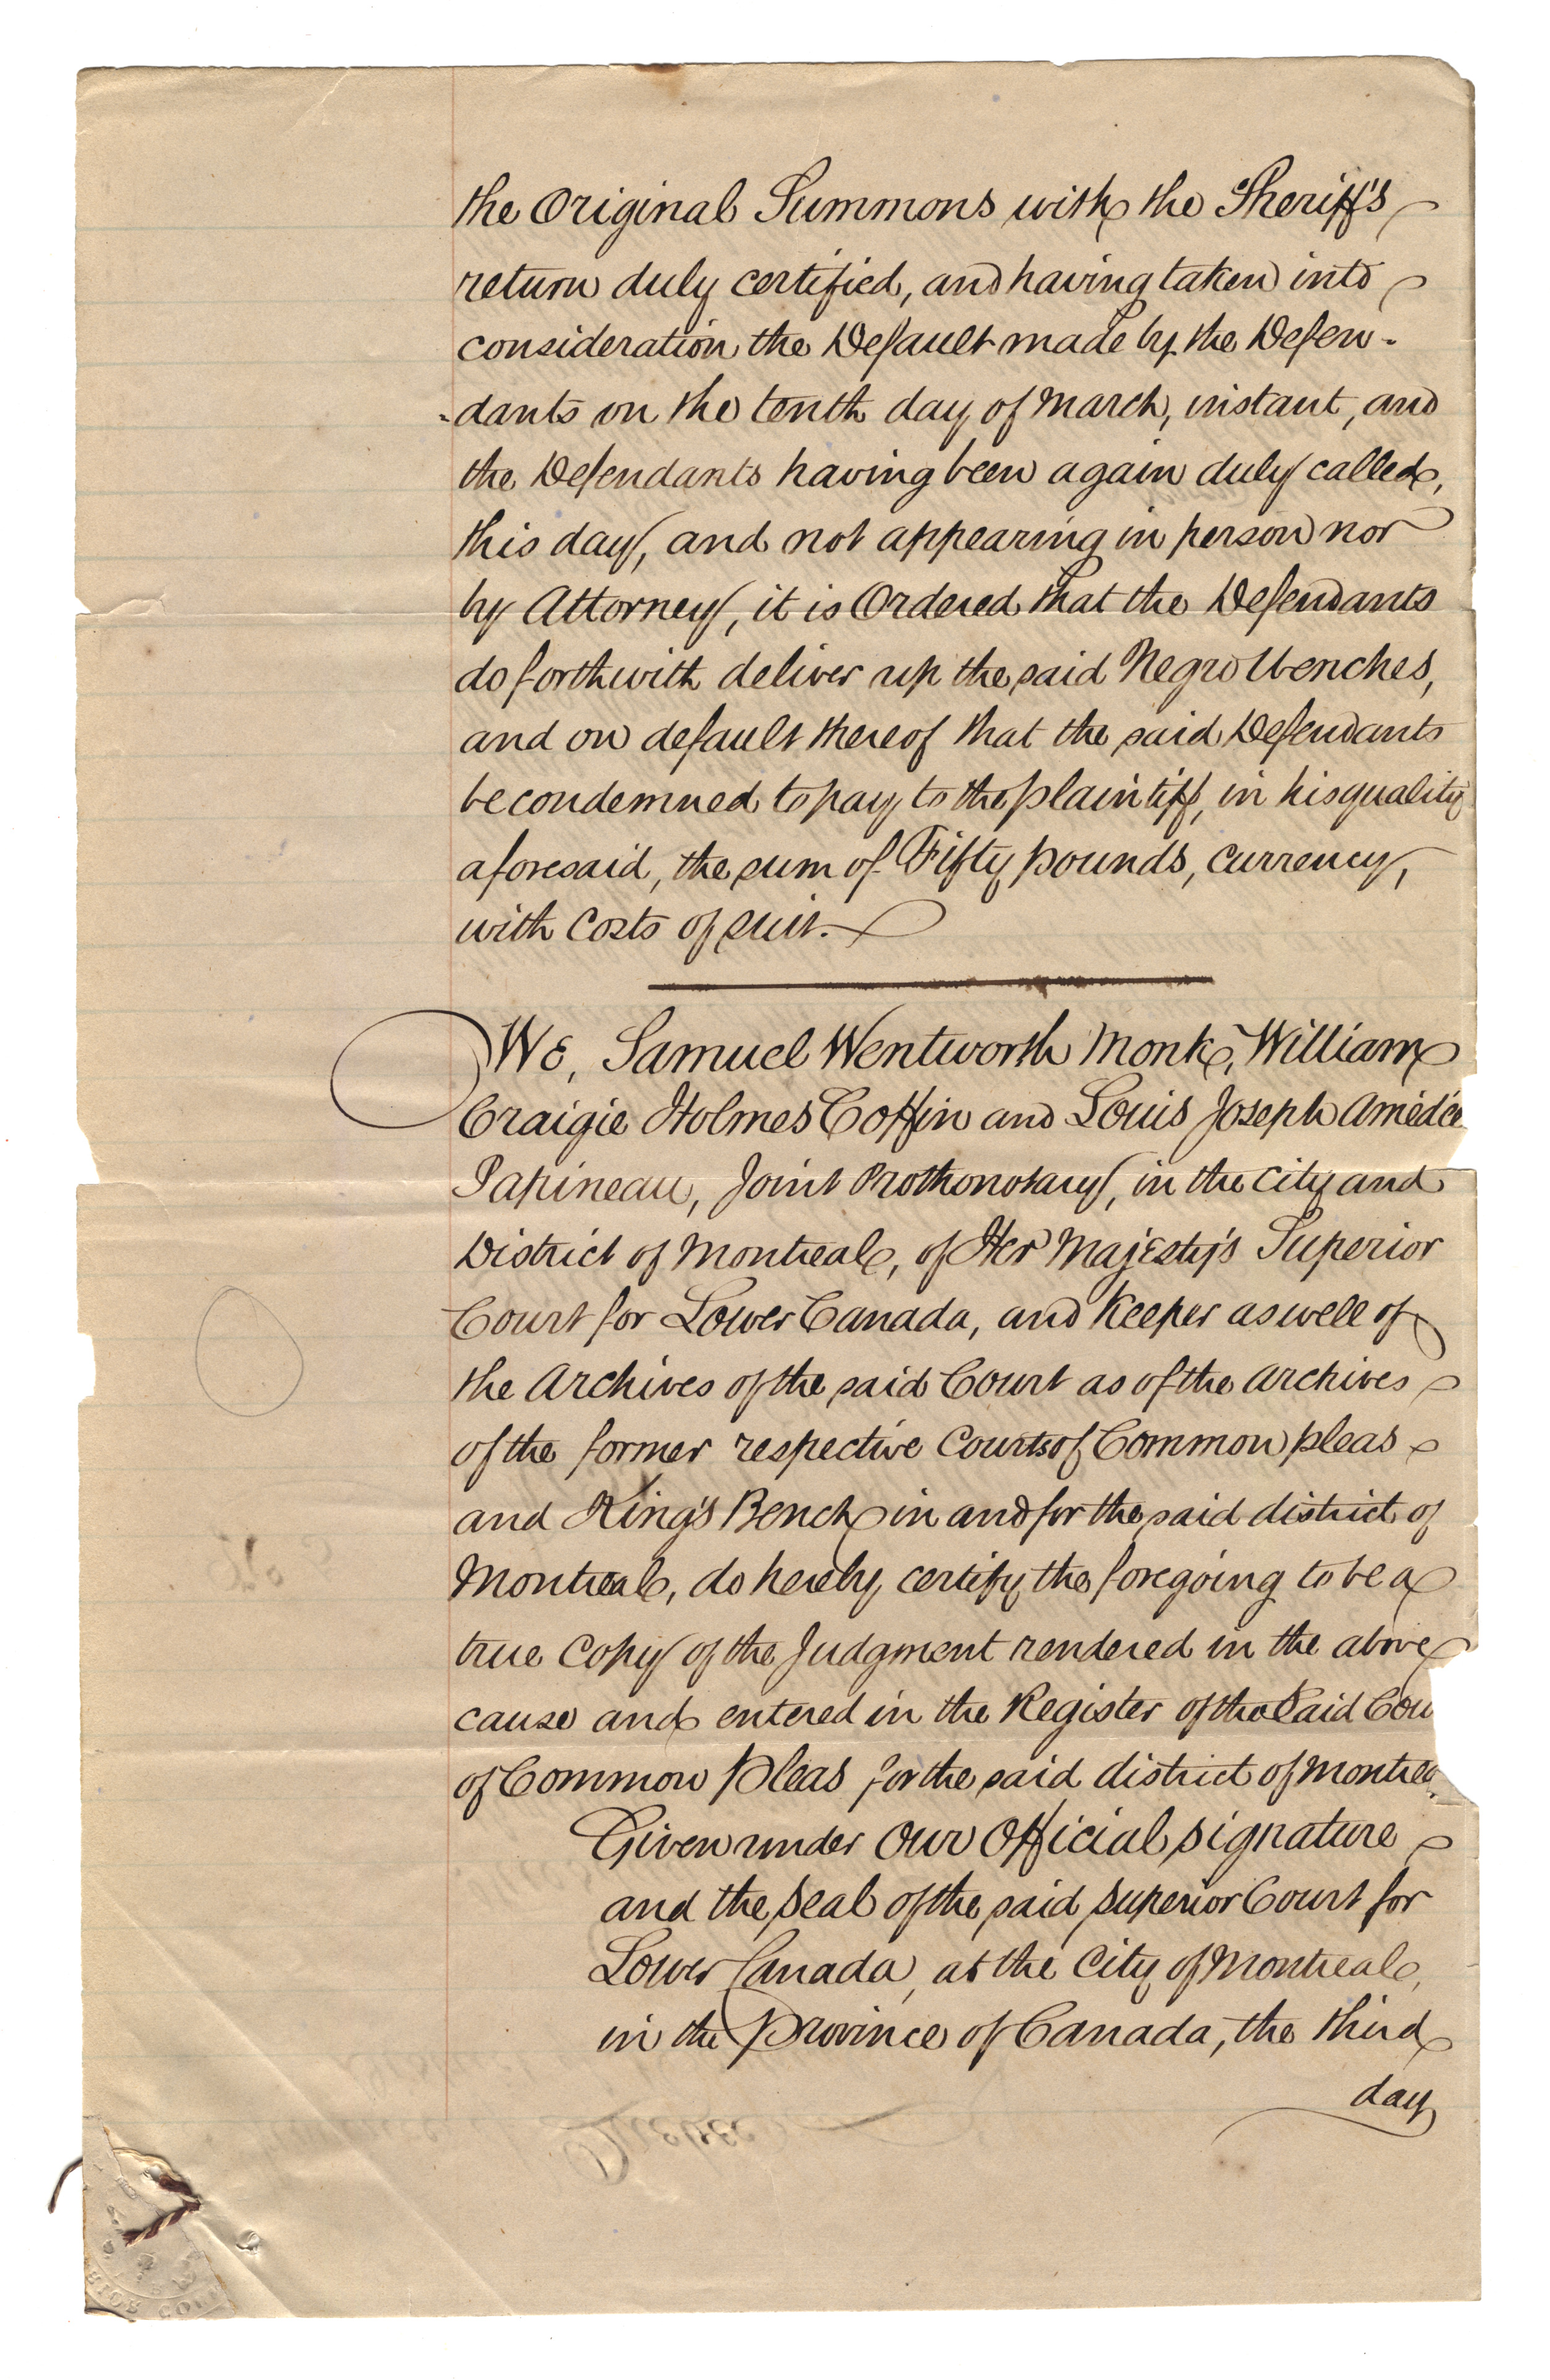 the Original Summons with the Sheriff's
return duly certified, and having taken into
consideration the Default made by the Defen-
-dants on the tenth day of March, instant, and
the Defendants having been again duly called,
this day, and not appearing in person nor
by Attorney, it is Ordered that the Defendants
do forthwith deliver up the said Negro Wenches,
and on default thereof that the said Defendants
be condemned to pay to the plaintiff, in his quality
aforesaid, the sum of Fifty pounds, currency,
with Costs of suit.
We, Samuel Wentworth Monk, William
Craigie Holmes Coffin and Louis Joseph Amédée
Papineau, Joint Prothonotary, in the City and
District of Montreal, of Her Majesty's Superior
Court for Lower Canada, and Keeper as well of
the Archives of the said Court as of the Archives
of the former respective Courts of Common pleas
and King's Bench in and for the said district of
Montreal, do hereby certify the foregoing to be a
true Copy of the Judgment rendered in the above
cause and entered in the Register of the said Cou
of Common Pleas for the said district of Montrea
Given under Our Official signature
and the Seal of the said Superior Court for
Lower Canada, at the City of Montreal,
in the Province of Canada, the third
day